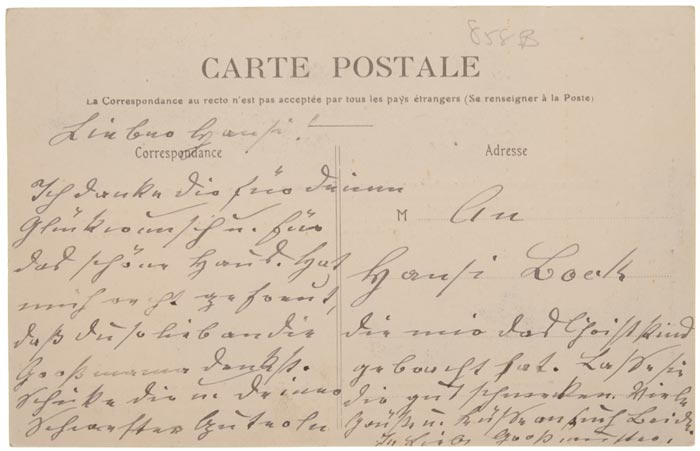 858B
CARTE POSTALE
La Correspondance au recto n'est pas acceptée par tous les pays étrangers (Se renseigner à la Poste)
Lieber Hansi!
Correspondance
Ich danke dir für deinen
Glückwunsch u. für
das schöne Haus. Hat
mich recht gefreut,
daß du so lieb an die
Großmama denkst.
Schicke dir u. deiner
Schwester Guteln
Adresse
M An
Hansi Bock
die mir das Christkind
gebracht hat. Lasse sie
dir gut schmecken. Viele
Grüße u. Küsse an Euch Beide
In Liebe Großmutter.